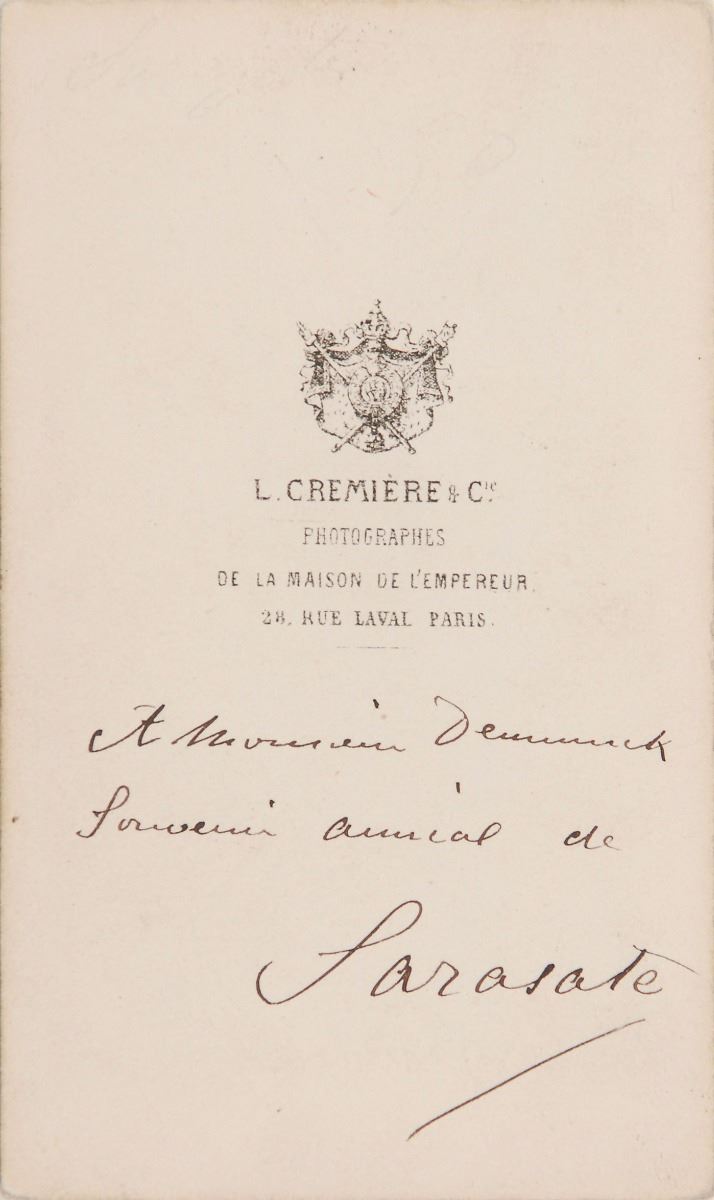 L. CREMIÈRE & Cie
PHOTOGRAPHES
DE LA MAISON DE L'EMPEREUR.
28, RUE LAVAL PARIS.
A Monsieur Demunck
Souvenir amical de
Sarasate